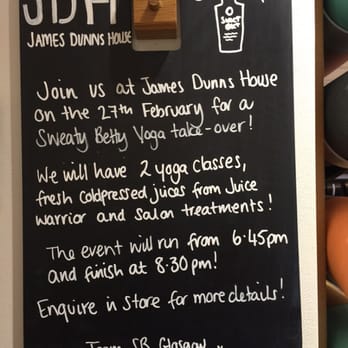 JDH
JAMES DUNNS HOUSE
Join us at James Dunns House
on the 27th February for a
Sweaty Betty Yoga take-over!
We will have 2 yoga classes,
fresh coldpressed juices from Juice
Warrior and Salon treatments!
The event will run from 6.45pm
and finish at 8:30pm!
Enquire in Store for more details!
Team SB Glasgow